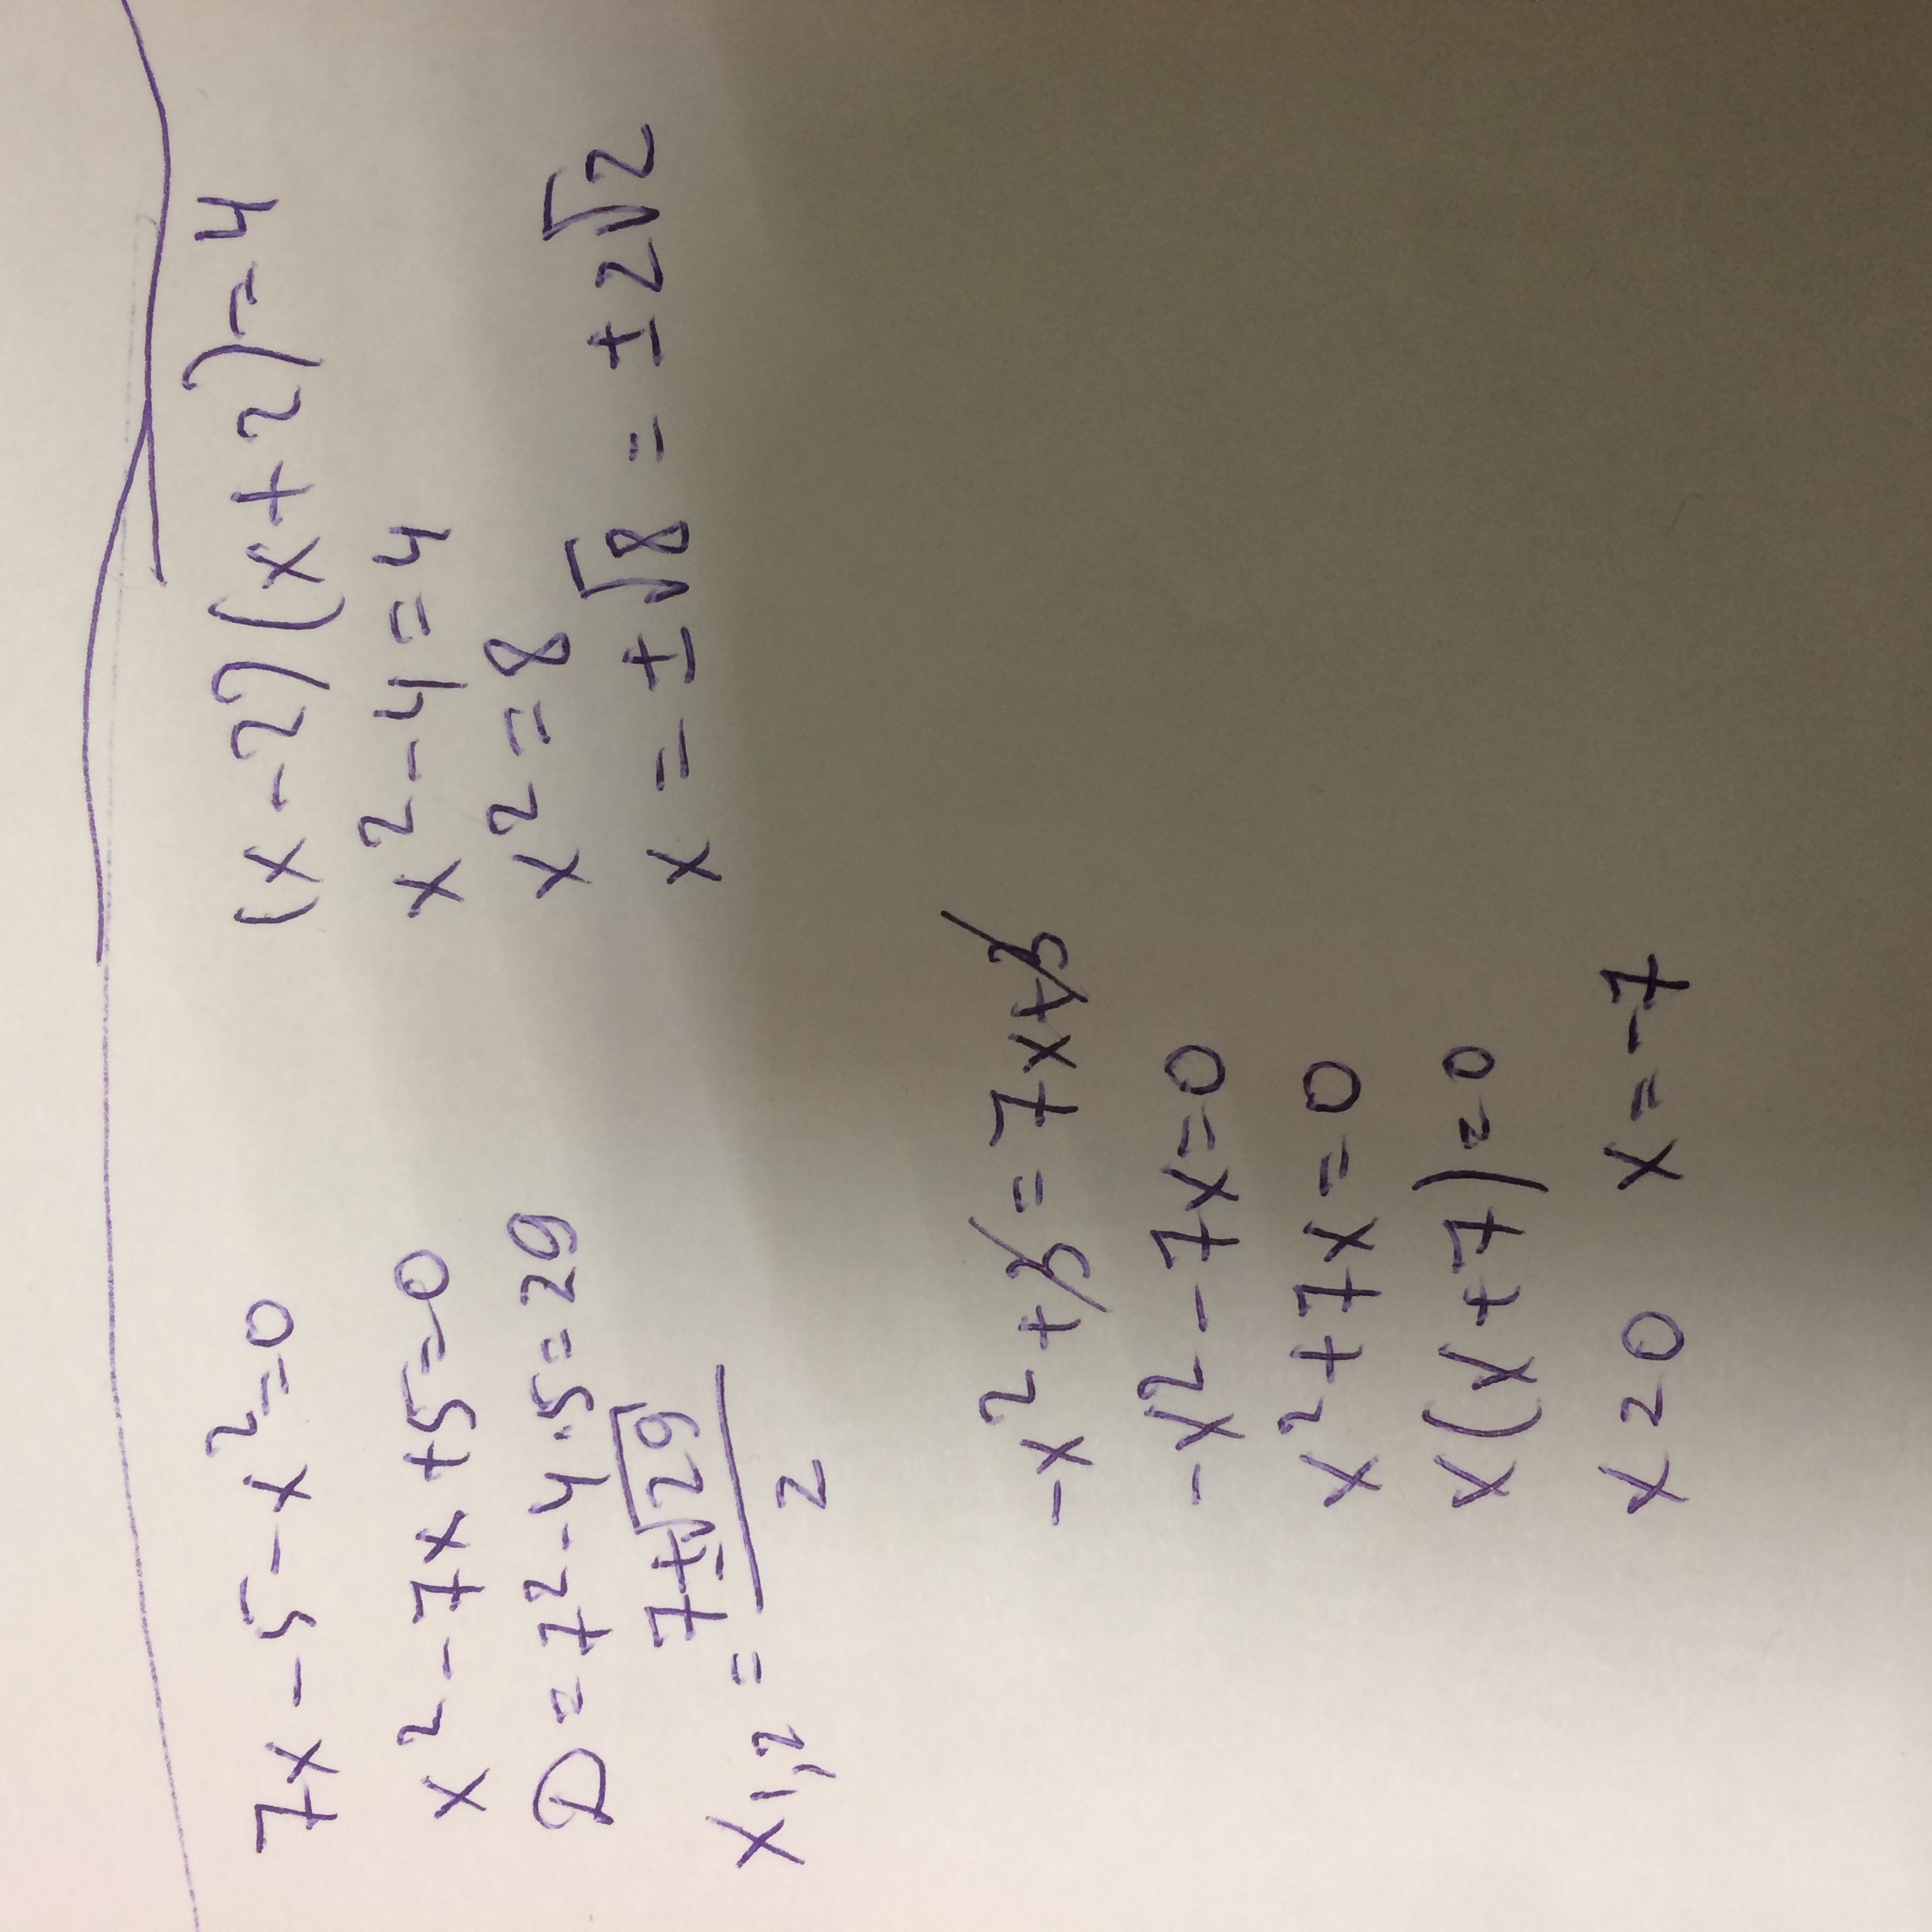 7x - 5 - x² = 0
x² - 7x + 5 = 0
D = 7² - 4·5 = 29
x₁,₂ = (7 ± √29) / 2
(x - 2)(x + 2) = 4
x² - 4 = 4
x² = 8
x = ± √8 = ± 2√2
-x² + 5 = 7x + 5
-x² - 7x = 0
x² + 7x = 0
x(x + 7) = 0
x = 0 x = -7